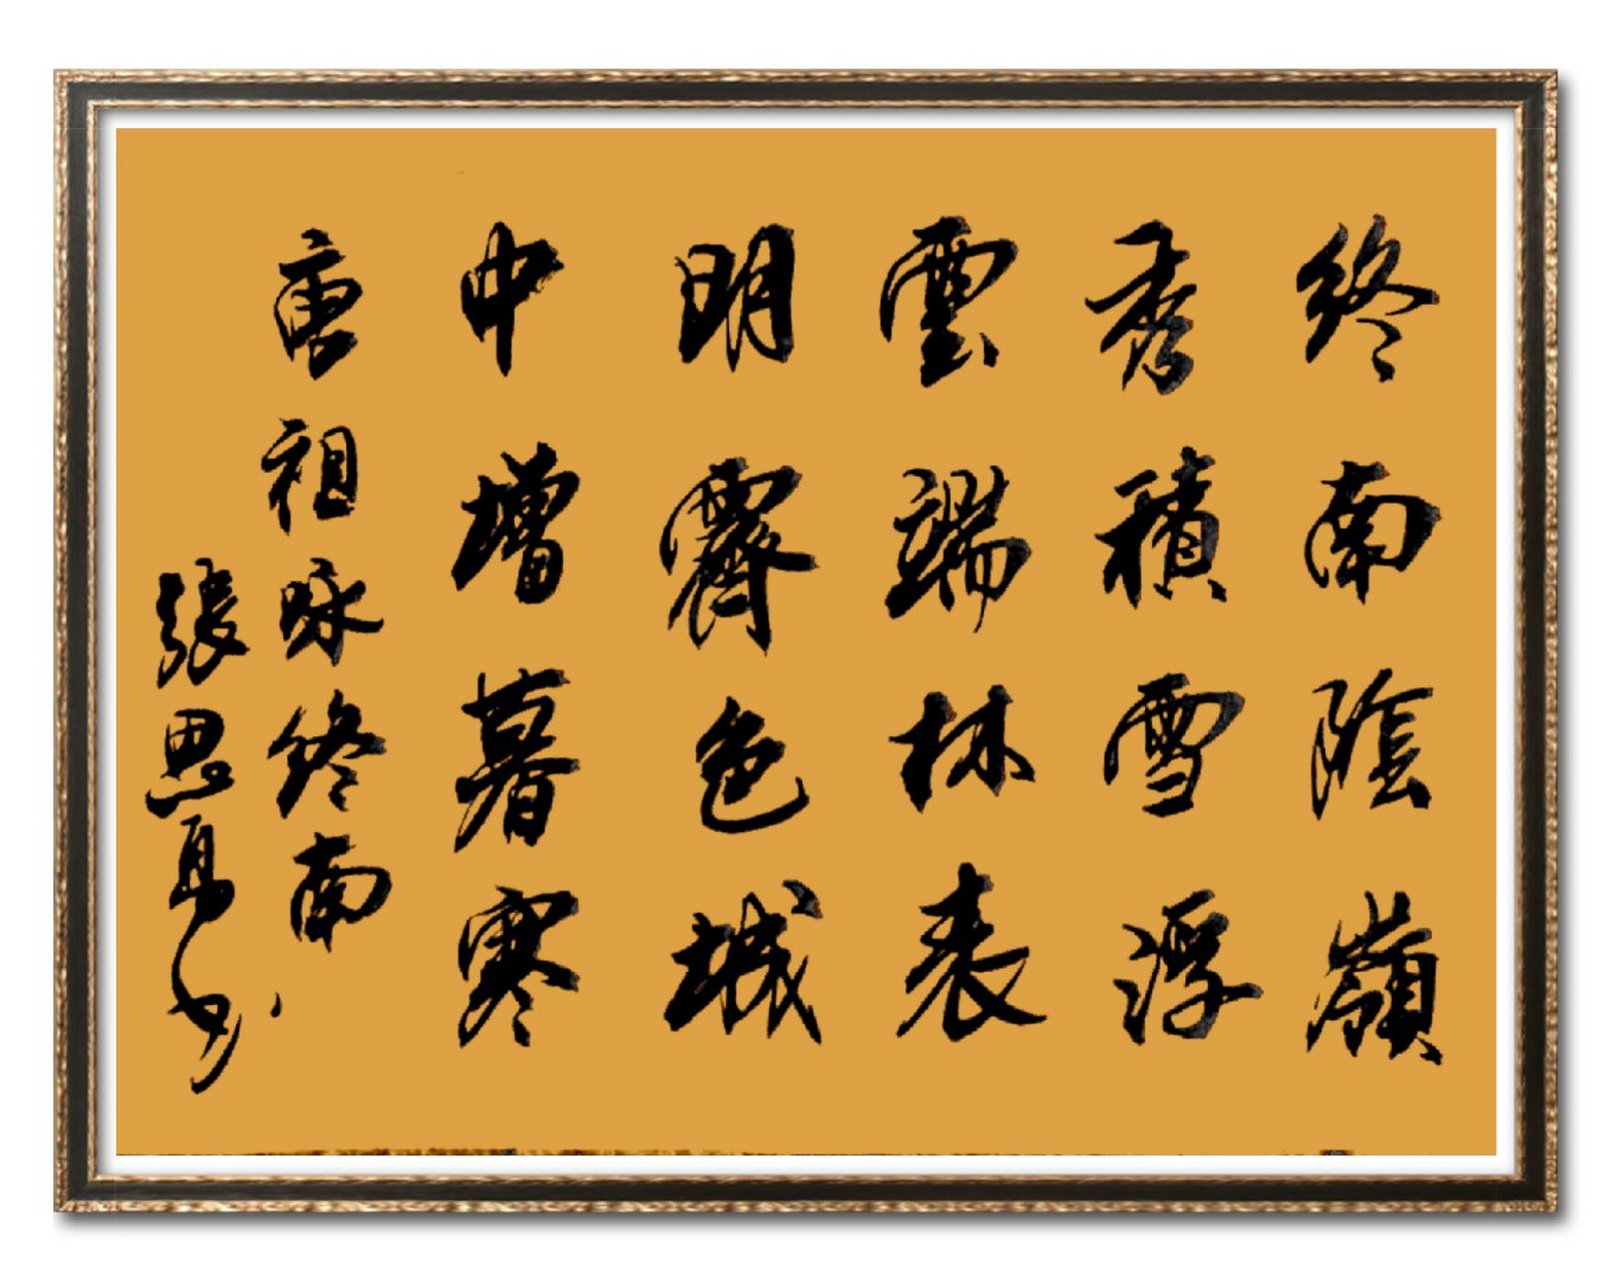 終南陰嶺
秀積雪浮
雲端林表
明霽色城
中增暮寒
唐祖咏終南
張思书